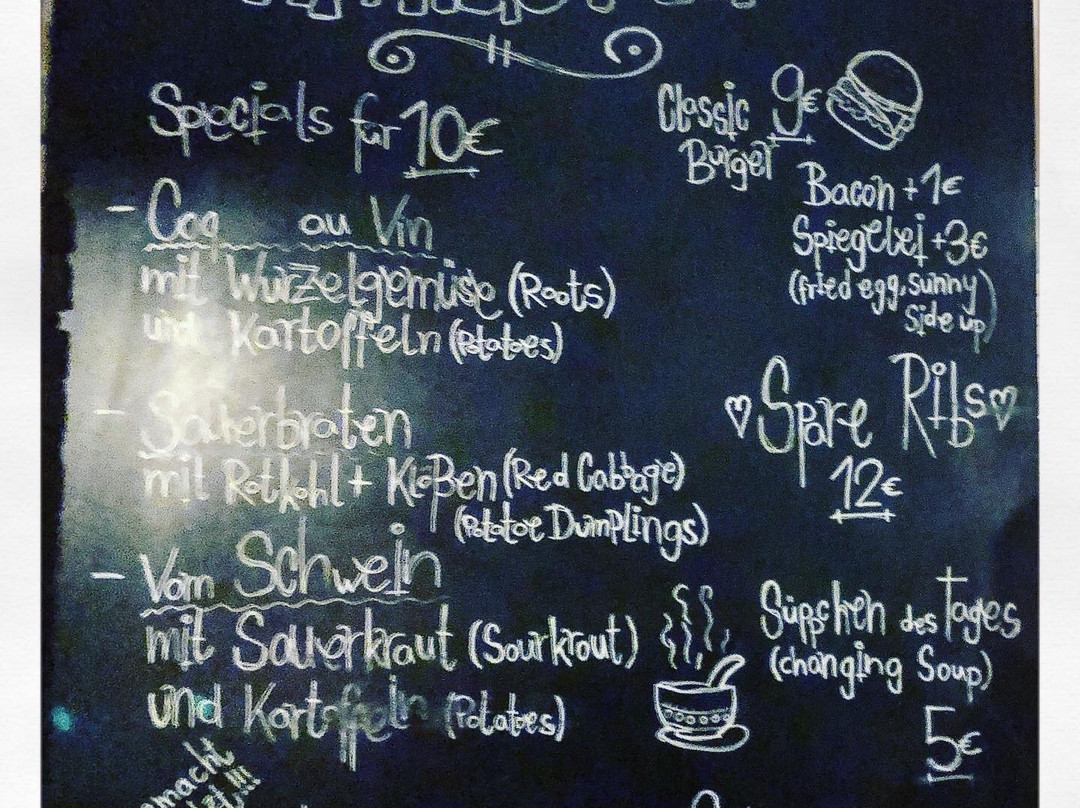 Specials für 10€
- Coq au Vin
mit Wurzelgemüse (Roots)
und Kartoffeln (Potatoes)
- Sauerbraten
mit Rotkohl + Klößen (Red Cabbage)
(Potatoe Dumplings)
- Vom Schwein
mit Sauerkraut (Sourkrout)
und Kartoffeln (Potatoes)
Classic 9€
Burger
Bacon +1€
Spiegelei +3€
(fried egg, sunny
side up)
♡ Spare Ribs ♡
12€
Süppchen des Tages
(changing Soup)
5€